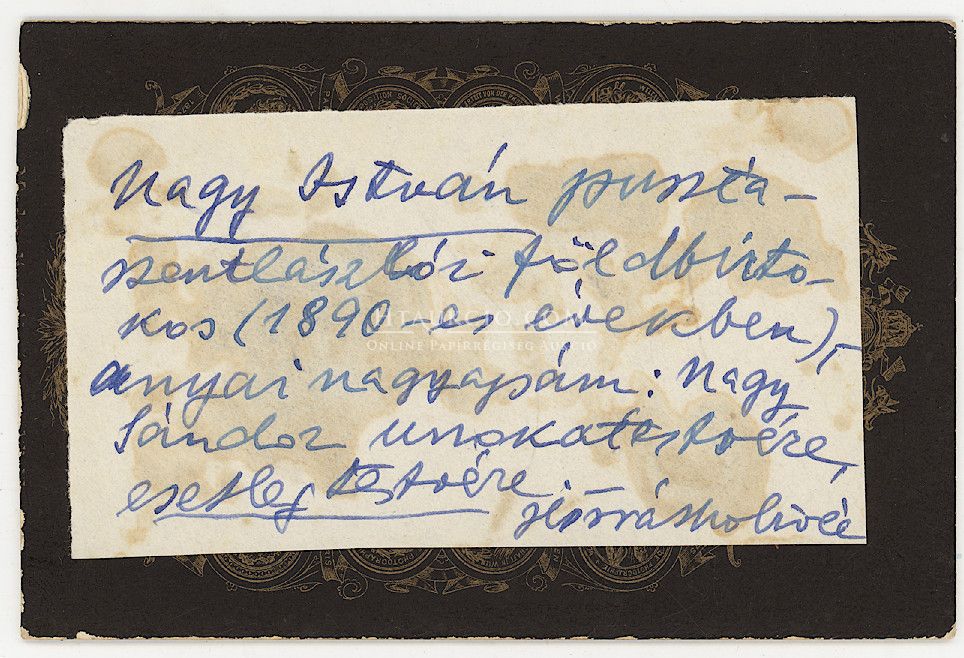 Nagy István puszta-
szentlászlói földbirto-
kos (1890-es években),-
anyai nagyapám: Nagy
Sándor unokatestvére,
esetleg testvére.
ONLINE PAPÍRRÉGISÉG AUKCIÓ